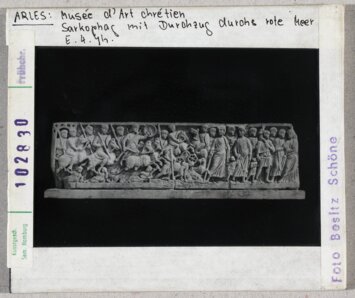 ARLES: Musée d'Art chrétien
Sarkophag mit Durchzug durchs rote Meer
E. 4. Jh.
Frühchr.
102830
Kunstgesch.
Sem. Hamburg
Foto Besitz Schöne